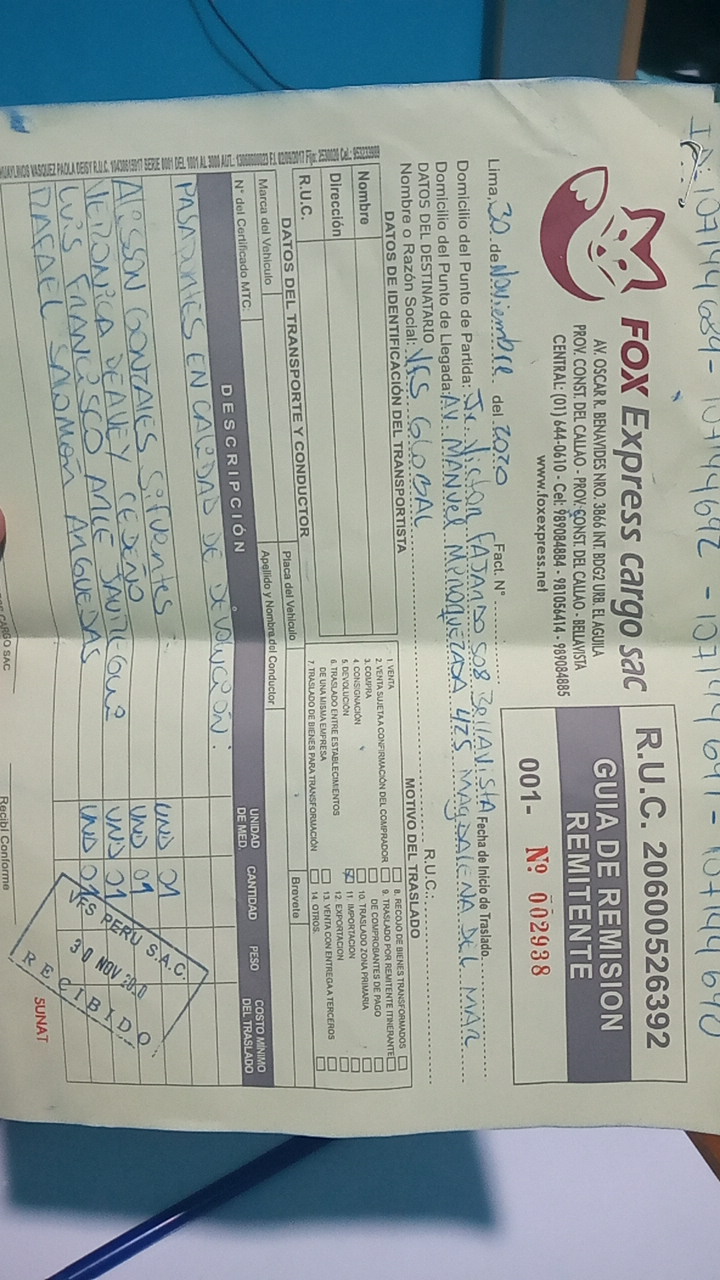 10714469
FOX Express cargo sac
AV. OSCAR R. BENAVIDES NRO. 3866 INT. BDG2 URB. EL AGUILA
PROV. CONST. DEL CALLAO - PROV. CONST. DEL CALLAO - BELLAVISTA
CENTRAL: (01) 644-0610 - Cel: 989084884 - 981056414 - 989084885
www.foxexpress.net
R.U.C. 20600526392
GUIA DE REMISION
REMITENTE
001- Nº 002938
Lima, 30 de Noviembre del 2020 Fact. N°
Fecha de Inicio de Traslado.
Domicilio del Punto de Partida: Jr. Victor FAJARDO 508 BellAVISTA
Domicilio del Punto de Llegada: AV. MANUEL 425 MAGDALENA DEL MAR
DATOS DEL DESTINATARIO
Nombre o Razón Social: VFS GLOBAL R.U.C.:
DATOS DE IDENTIFICACIÓN DEL TRANSPORTISTA
Nombre
Dirección
R.U.C.
MOTIVO DEL TRASLADO
1. VENTA
2. VENTA SUJETA A CONFIRMACIÓN DEL COMPRADOR
3. COMPRA
4. CONSIGNACIÓN
5. DEVOLUCIÓN
6. TRASLADO ENTRE ESTABLECIMIENTOS
DE UNA MISMA EMPRESA
7. TRASLADO DE BIENES PARA TRANSFORMACIÓN
8. RECOJO DE BIENES TRANSFORMADOS
9. TRASLADO POR REMITENTE ITINERANTE
DE COMPROBANTES DE PAGO
10. TRASLADO ZONA PRIMARIA
11. IMPORTACION
12. EXPORTACION
13. VENTA CON ENTREGA A TERCEROS
14. OTROS
DATOS DEL TRANSPORTE Y CONDUCTOR
Marca del Vehiculo Placa del Vehículo
N° del Certificado MTC: Apellido y Nombre del Conductor Brevete
DESCRIPCIÓN UNIDAD DE MED. CANTIDAD PESO COSTO MÍNIMO DEL TRASLADO
PASAPORTES EN CALIDAD DE DEVOLUCIÓN:
ALISSON GONZALES SIFUENTES UND 01
VERONICA CEDEÑO UND 01
LUIS FRANCISCO UND 01
RAFAEL SALOMÓN ANGUEDAS UND 01
VFS PERU S.A.C.
30 NOV 2020
RECIBIDO
SUNAT
HUAYLINOS VASQUEZ PAOLA DEISY R.U.C. 10430615917 SERIE 0001 DEL 1001 AL 3000 AUT.: F.I. 02/09/2017 Fijo: 2530020 Cel.:
CARGO SAC
Recibí Conforme